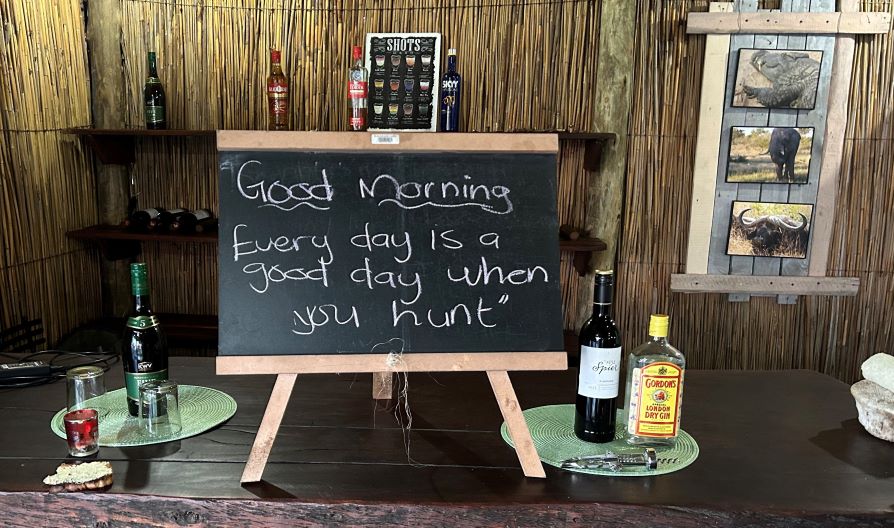 SHOTS
SKYY
Good Morning
Every day is a
good day when
you hunt"
5
KWV
Spier
GORDON'S
LONDON
DRY GIN